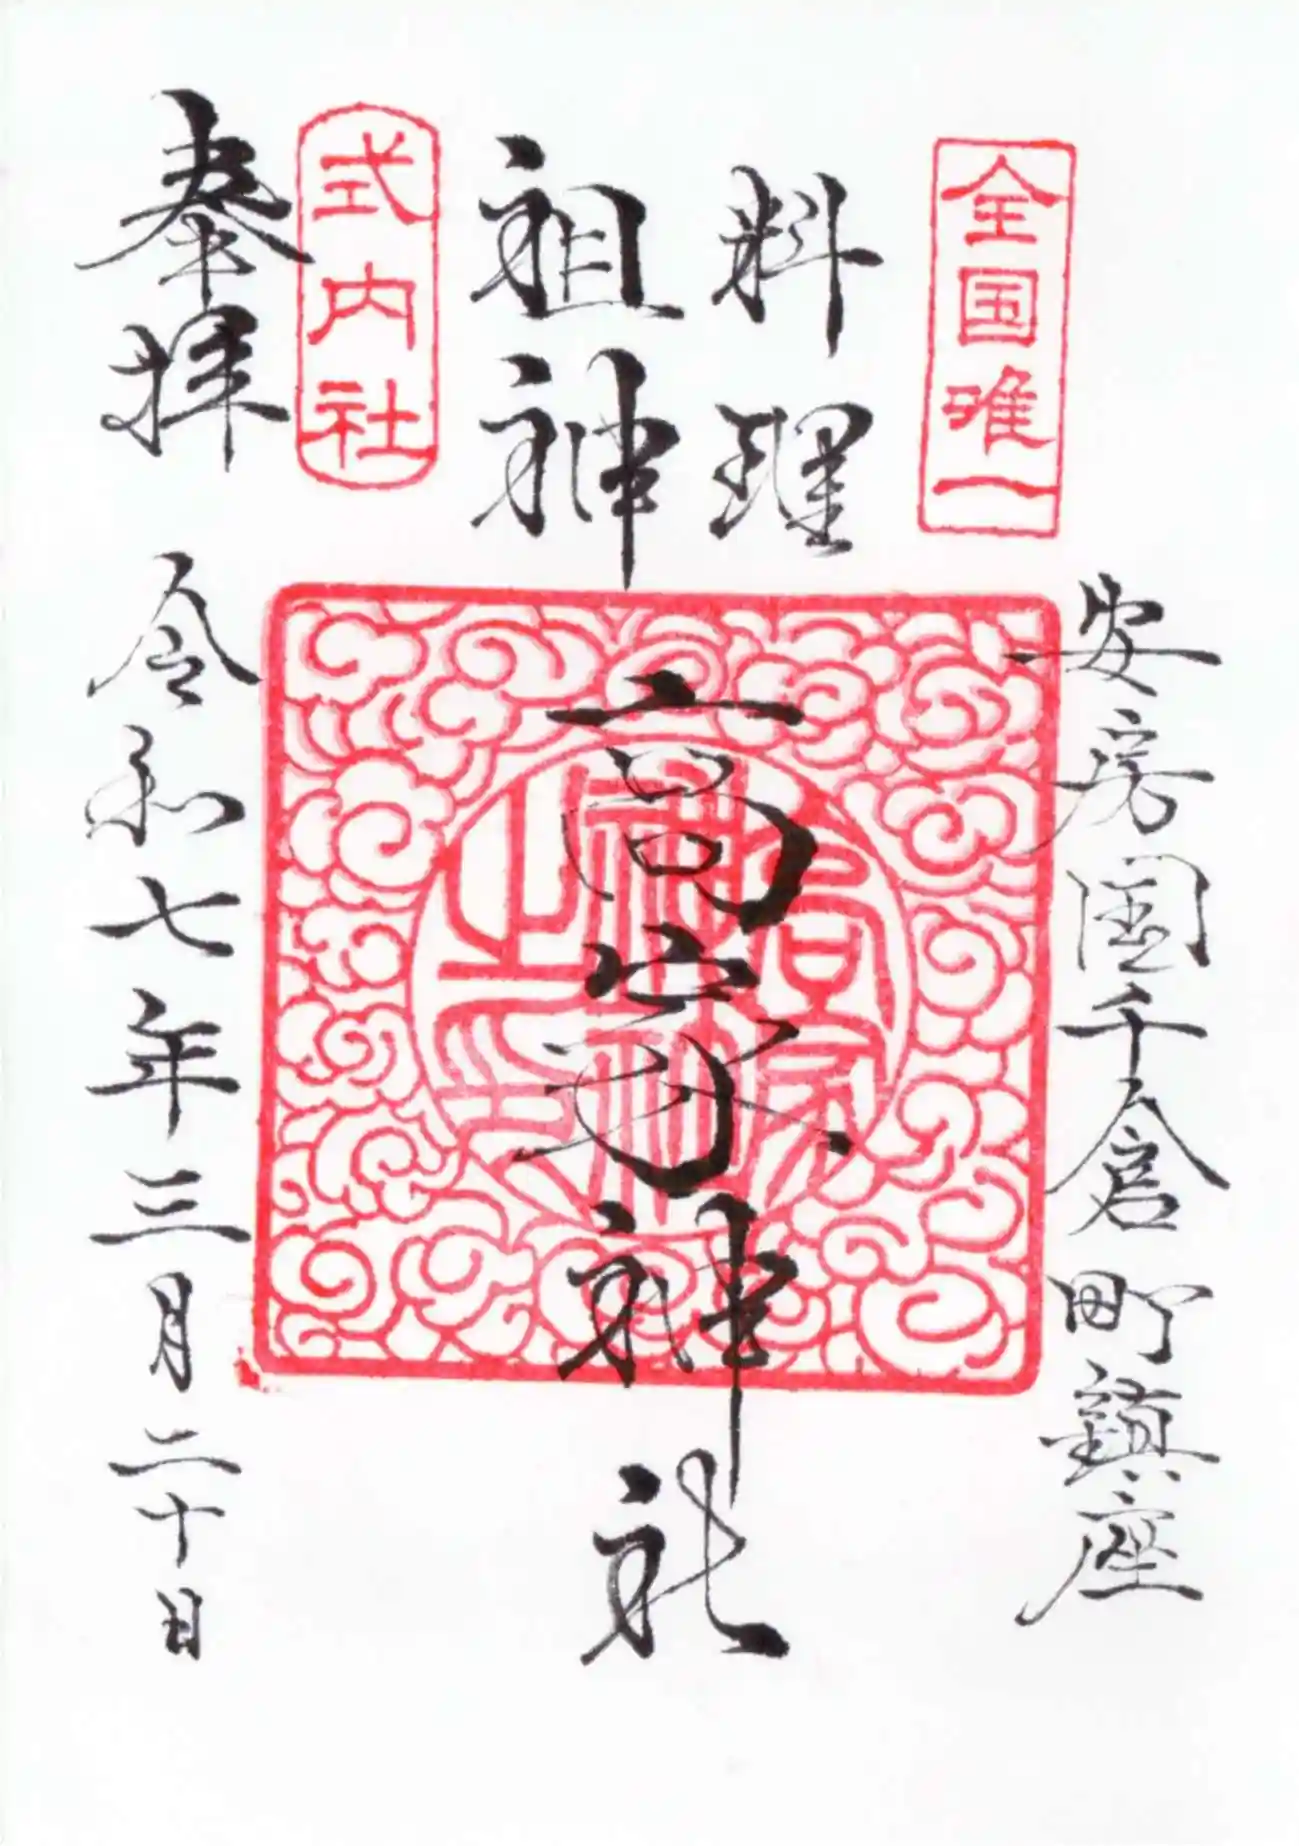 全国唯一
安房国千倉町鎮座
料理
祖神
高家神社
式内社
奉拝
令和七年三月二十日